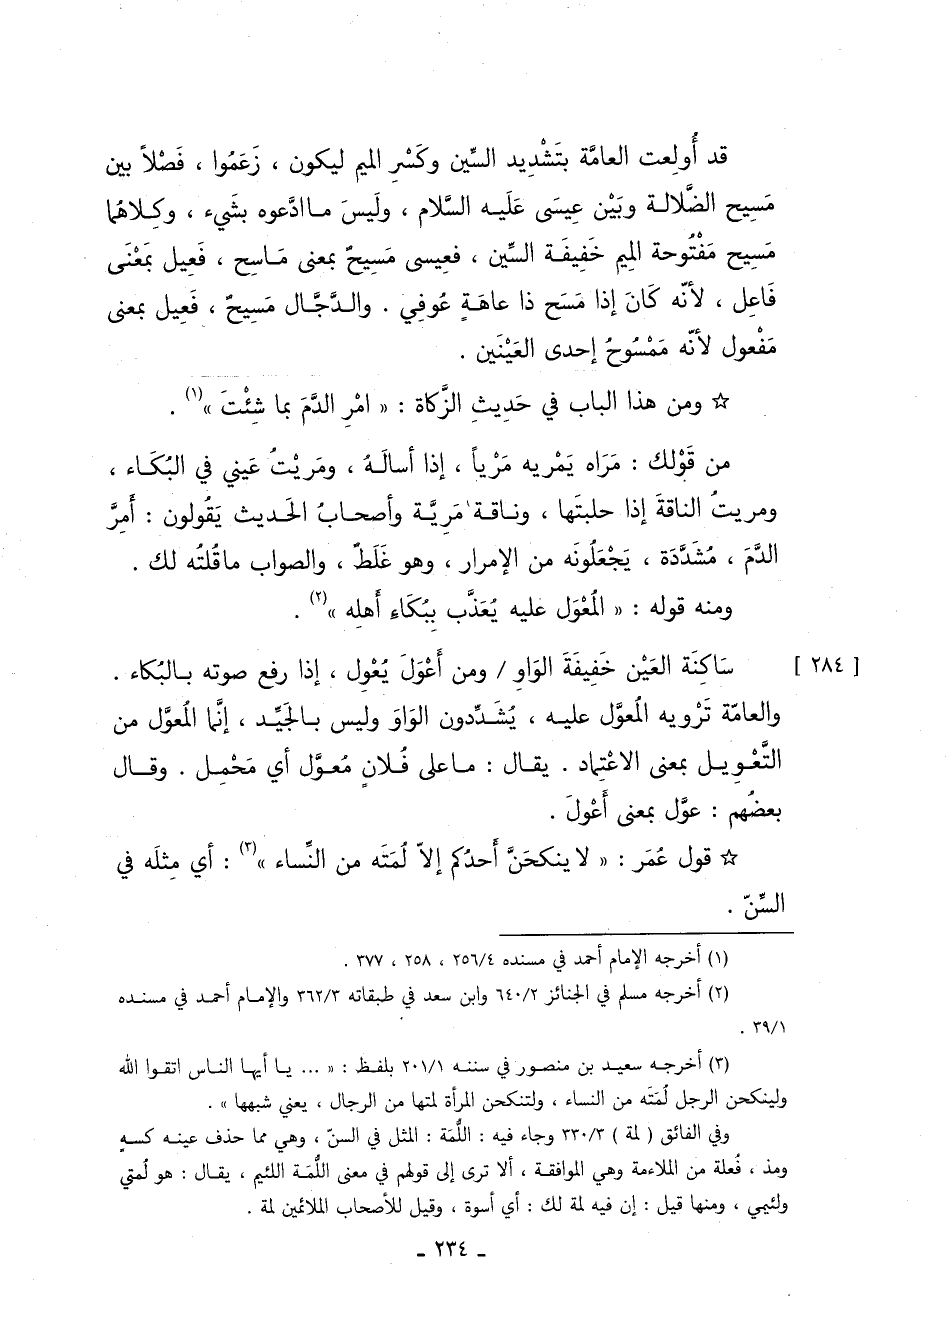 قد أُولِعت العامَّة بتَشْدِيد السِّين وكَسْرِ الميم ليكون ، زَعَمُوا ، فَصْلاً بين
مَسِيح الضَّلالة وبَيْن عِيسَى عَلَيه السَّلام ، ولَيسَ ما ادَّعوه بشَيء ، وكِلاهُما
مَسِيح مَفْتُوحة المِيم خَفِيفَة السِّين ، فعِيسى مَسِيحٌ بمعنى مَاسِح ، فَعِيل بمَعْنَى
فَاعِل ، لأنّه كَانَ إذا مَسَح ذا عاهَةٍ عُوفِي . والدَّجَّال مَسِيحٌ ، فَعِيل بمعنى
مَفْعول لأنّه مَمْسُوحُ إحدى العَيْنَين .
☆ ومن هذا الباب في حَدِيثِ الزَّكاة : « امْرِ الدَّمَ بما شِئْتَ »(١) .
من قَوْلك : مَرَاه يَمْرِيه مَرْياً ، إذا أسالَهُ ، ومَريْتُ عَيني في البُكَاء ،
ومريتُ الناقةَ إذا حلبتَها ، وناقة مَرِيَّة وأصحابُ الحَديث يَقُولون : أَمِرَّ
الدَّمَ ، مُشَدَّدَة ، يَجْعَلُونَه من الإمرار ، وهو غَلَطٌ ، والصواب ماقُلتُه لك .
ومنه قوله : « المُعْوَل عليه يُعَذَّب بِبُكَاءِ أهلِه »(٢) .
[ ٢٨٤ ] سَاكِنَة العَيْن خَفِيفَةَ الوَاوِ / ومن أَعْوَلَ يُعْوِل ، إذا رفع صوته بالبُكاء .
والعامّة تَرْويه المُعوَّل عليه ، يُشَدِّدون الوَاوَ وليس بالجَيِّد ، إنَّما المُعوَّل من
التَّعْوِيل بمعنى الاعْتِماد . يقال : ماعلى فُلانٍ مُعوَّل أي مَحْمِل . وقال
بعضُهم : عوَّل بمعنى أَعْولَ .
☆ قول عُمَر : « لا ينكحَنَّ أَحدُكم إلاّ لُمَتَه من النِّساء »(٣) : أي مِثلَه في
السِّنّ .
(١) أخرجه الإمام أحمد في مسنده ٢٥٦/٤ ، ٢٥٨ ، ٣٧٧ .
(٢) أخرجه مسلم في الجنائز ٦٤٠/٢ وابن سعد في طبقاته ٣٦٢/٣ والإمام أحمد في مسنده
٣٩/١ .
(٣) أخرجه سعيد بن منصور في سننه ٢٠١/١ بلفظ : « ... يا أيها الناس اتقوا الله
ولينكحن الرجل لُمَتَه من النساء ، ولتنكحن المرأة لمتها من الرجال ، يعني شبهها » .
وفي الفائق ( لمة ) ٣٣٠/٣ وجاء فيه : اللُّمَة : المثل في السنّ ، وهي مما حذف عينه كسهٍ
ومذ ، فُعلة من الملاءمة وهي الموافقة ، ألا ترى إلى قولهم في معنى اللُّمَة اللئيم ، يقال : هو لُمتي
ولئيمي ، ومنها قيل : إن فيه لمة لك : أي أسوة ، وقيل للأصحاب الملائمين لمة .
- ٢٣٤ -